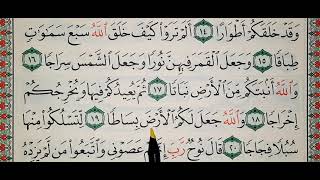 وَقَدْ خَلَقَكُمْ أَطْوَارًا ١٤ أَلَمْ تَرَوْا۟ كَيْفَ خَلَقَ ٱللَّهُ سَبْعَ سَمَـٰوَٰتٍ
طِبَاقًا ١٥ وَجَعَلَ ٱلْقَمَرَ فِيهِنَّ نُورًا وَجَعَلَ ٱلشَّمْسَ سِرَاجًا ١٦
وَٱللَّهُ أَنۢبَتَكُم مِّنَ ٱلْأَرْضِ نَبَاتًا ١٧ ثُمَّ يُعِيدُكُمْ فِيهَا وَيُخْرِجُكُمْ
إِخْرَاجًا ١٨ وَٱللَّهُ جَعَلَ لَكُمُ ٱلْأَرْضَ بِسَاطًا ١٩ لِّتَسْلُكُوا۟ مِنْهَا
سُبُلًا فِجَاجًا ٢٠ قَالَ نُوحٌ رَّبِّ عَصَوْنِى وَٱتَّبَعُوا۟ مَن لَّمْ يَزِدْهُ